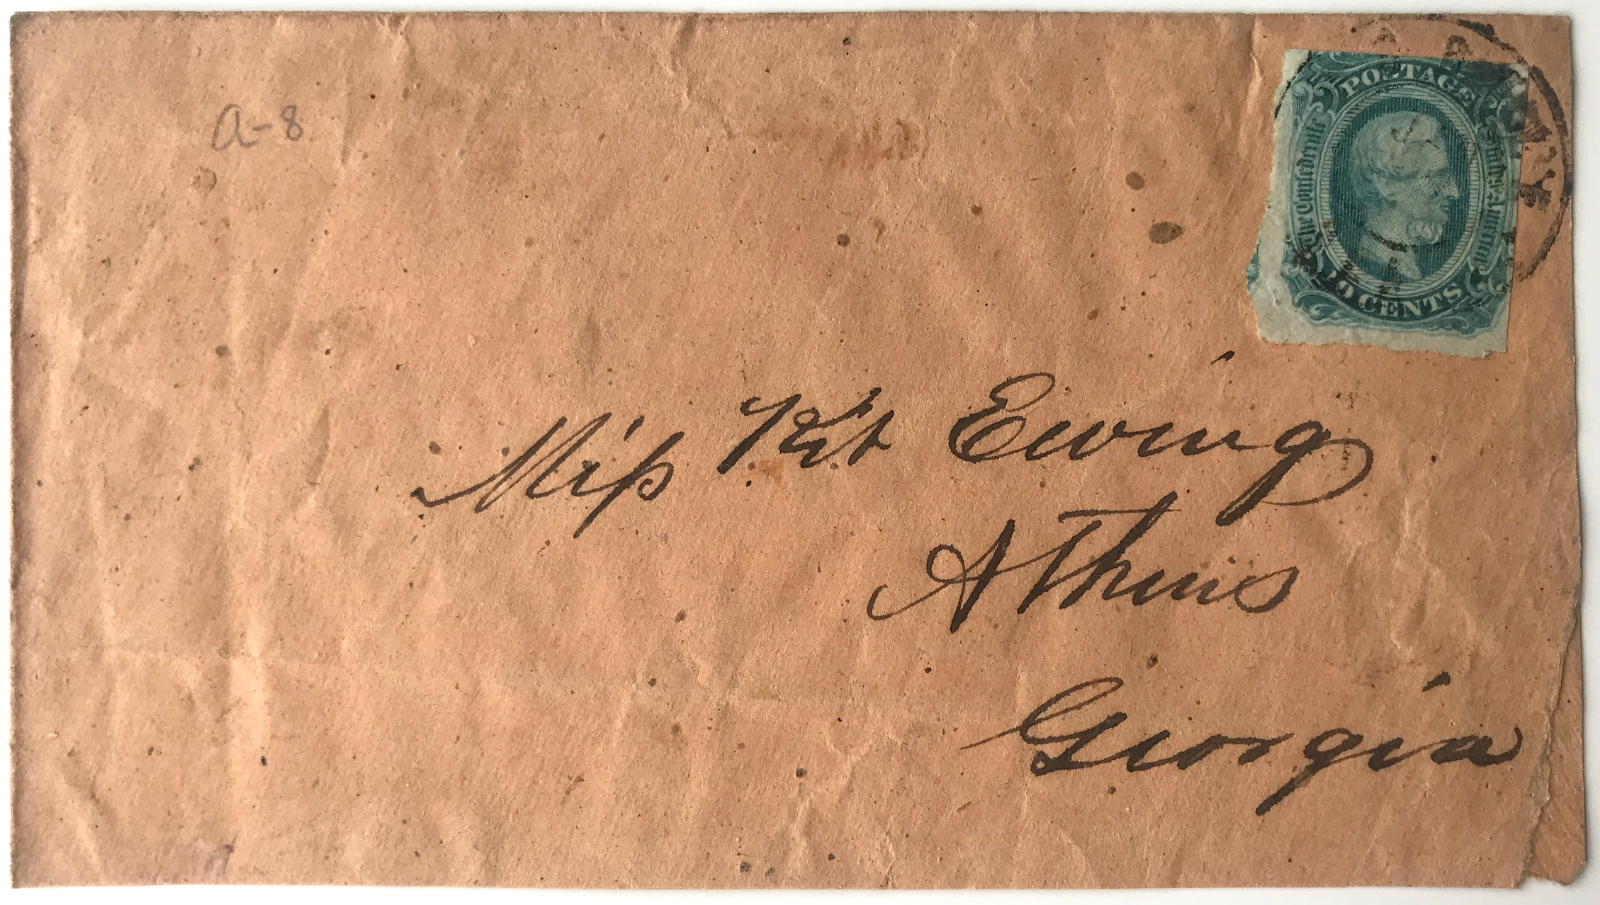 a-8
POSTAGE
The Confederate States of America
10 CENTS
Miss Kit Ewing
Athens
Georgia